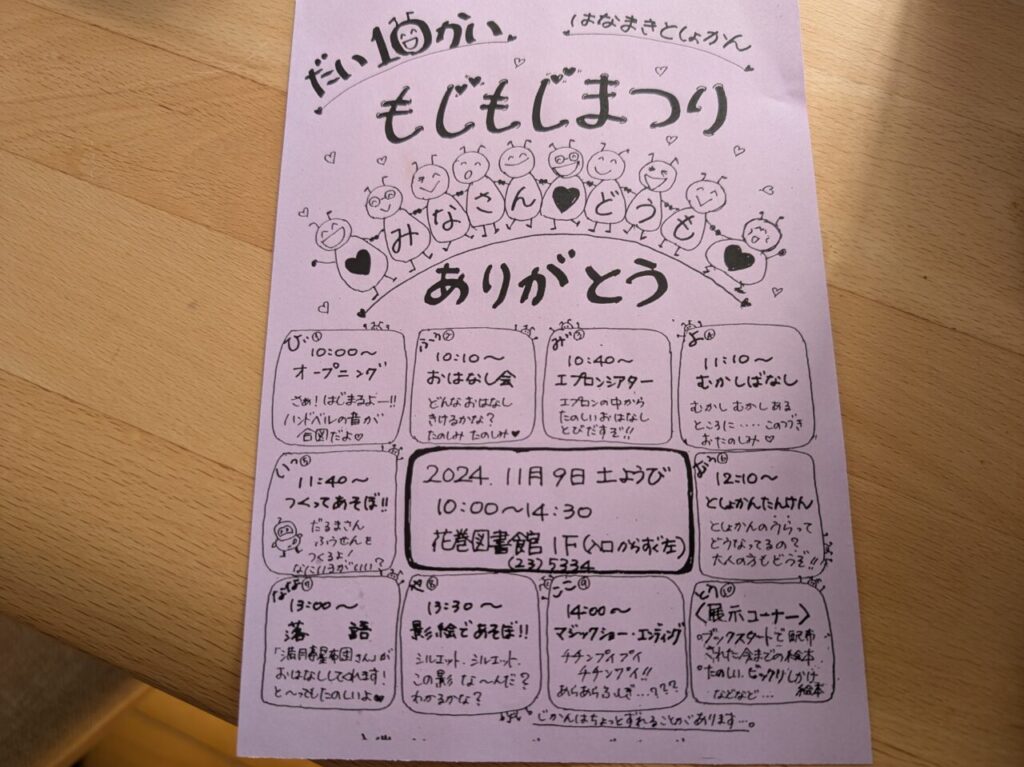 だい10かい
はなまきとしょかん
もじもじまつり
みなさん♥どうも
ありがとう
ひ①
10:00～
オープニング
さぁ!はじまるよー!!
ハンドベルの音が
合図だよ♡
ふ②
10:10～
おはなし会
どんなおはなし
きけるかな?
たのしみ たのしみ♥
み③
10:40～
エプロンシアター
エプロンの中から
たのしいおはなし
とびだすぞ!!
よ④
11:10～
むかしばなし
むかし むかし ある
ところに・・・・・このつづき
おたのしみ♡
いつ⑤
11:40～
つくってあそぼ!!
だるまさん
ふうせんを
つくるよ!
なにいろがいい?
2024.11月9日土ようび
10:00～14:30
花巻図書館 1F(入口からすぐ左)
(23)5334
12:10～
としょかんたんけん
としょかんのうらって
どうなってるの?
大人の方もどうぞ!!
なな⑦
13:00～
落語
「満月春星布団さん」が
おはなししてくれます!
と～ってもたのしいよ♥
や⑧
13:30～
影絵であそぼ!!
シルエット.シルエット.
この影 な～んだ?
わかるかな?
ここ⑨
14:00～
マジックショー・エンディング
チチンプイプイ
チチンプイ!!
あらあらふしぎ…???
とう⑩
〈展示コーナー〉
°ブックスタートで配布
された今までの絵本
°たのしい ビックリしかけ
絵本
などなど…
じかんはちょっとずれることがあります…。